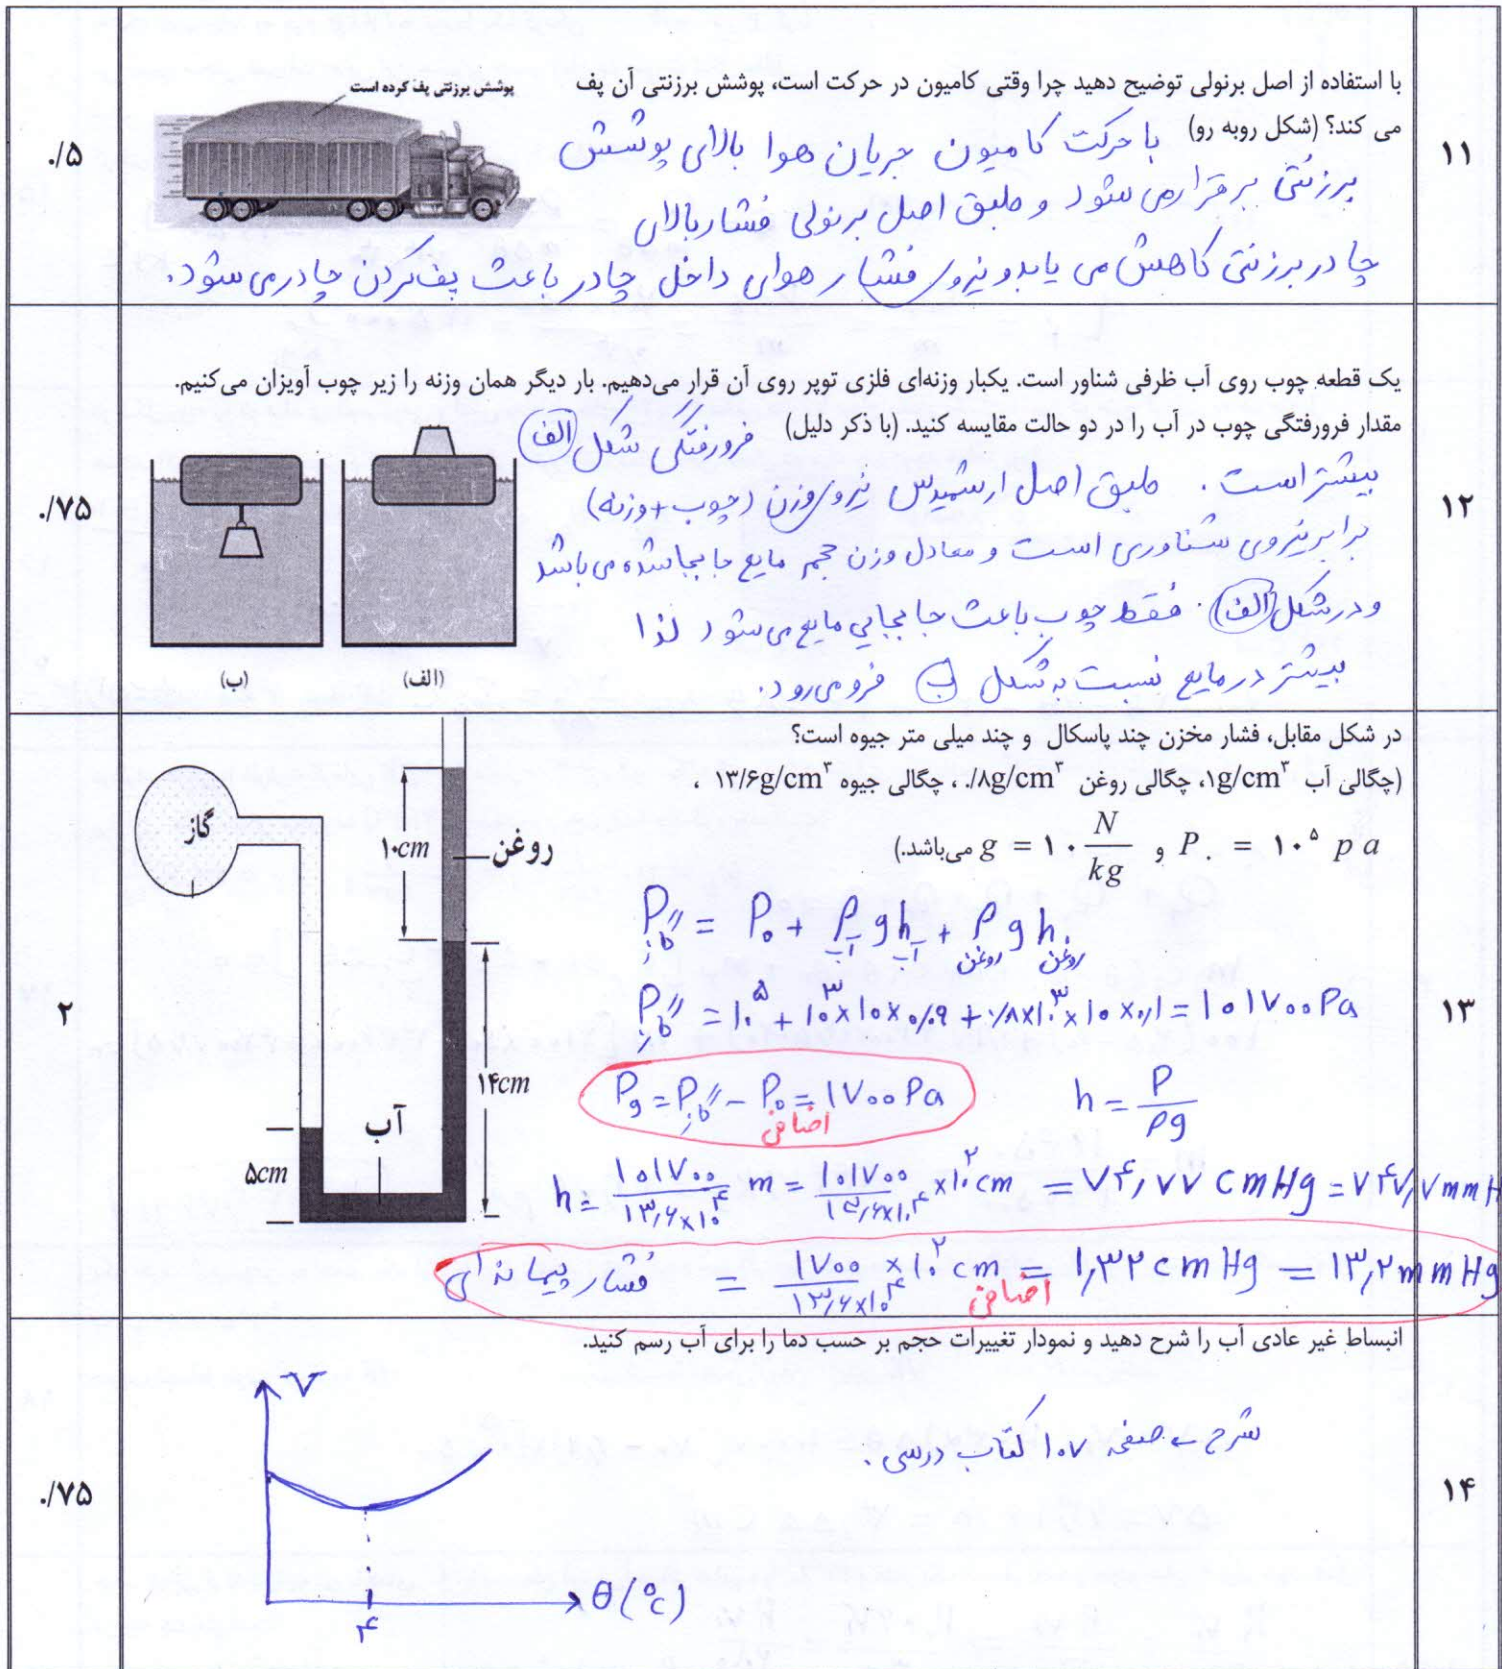 ۱۱
با استفاده از اصل برنولی توضیح دهید چرا وقتی کامیون در حرکت است، پوشش برزنتی آن پف
می کند؟ (شکل روبه رو)
پوشش برزنتی پف کرده است
با حرکت کامیون جریان هوا بالای پوشش
برزنتی برقرار می شود و طبق اصل برنولی فشار بالای
چادر برزنتی کاهش می یابد و نیروی فشار هوای داخل چادر باعث پف کردن چادر می شود.
./۵
۱۲
یک قطعه چوب روی آب ظرفی شناور است. یکبار وزنه‌ای فلزی توپر روی آن قرار می‌دهیم. بار دیگر همان وزنه را زیر چوب آویزان می‌کنیم.
مقدار فرورفتگی چوب در آب را در دو حالت مقایسه کنید. (با ذکر دلیل)
فرورفتگی شکل الف
بیشتر است. طبق اصل ارشمیدس نیروی وزن (چوب + وزنه)
برابر نیروی شناوری است و معادل وزن حجم مایع جابجا شده می باشد
و در شکل الف. فقط چوب باعث جابجایی مایع می شود لذا
بیشتر در مایع نسبت به شکل ب فرو می رود.
(الف)
(ب)
./۷۵
۱۳
در شکل مقابل، فشار مخزن چند پاسکال و چند میلی متر جیوه است؟
(چگالی آب ۱g/cm³، چگالی روغن ./۸g/cm³ ، چگالی جیوه ۱۳/۶g/cm³ ،
P. = ۱۰⁵ pa و g = ۱۰ N/kg می‌باشد.)
گاز
۱۰cm
روغن
۱۴cm
آب
۵cm
P گاز = P₀ + ρ آب g h آب + ρ روغن g h روغن
P گاز = ۱۰⁵ + ۱۰³×۱۰×۰٫۰۹ + ۰٫۸×۱۰³×۱۰×۰٫۱ = ۱۰۱۷۰۰ Pa
Pg = P گاز − P₀ = ۱۷۰۰ Pa
اضافی
h = P/ρg
h = ۱۰۱۷۰۰/۱۳٫۶×۱۰⁴ m = ۱۰۱۷۰۰/۱۳٫۶×۱۰⁴ ×۱۰² cm = ۷۴٫۷۷ cmHg = ۷۴۷٫۷ mmH
فشار پیمانه ای = ۱۷۰۰/۱۳٫۶×۱۰⁴ ×۱۰² cm = ۱٫۳۲ cmHg = ۱۳٫۲ mmHg
اضافی
۲
۱۴
انبساط غیر عادی آب را شرح دهید و نمودار تغییرات حجم بر حسب دما را برای آب رسم کنید.
شرح ← صفحه ۱۰۷ کتاب درسی.
V
θ(°c)
۴
./۷۵